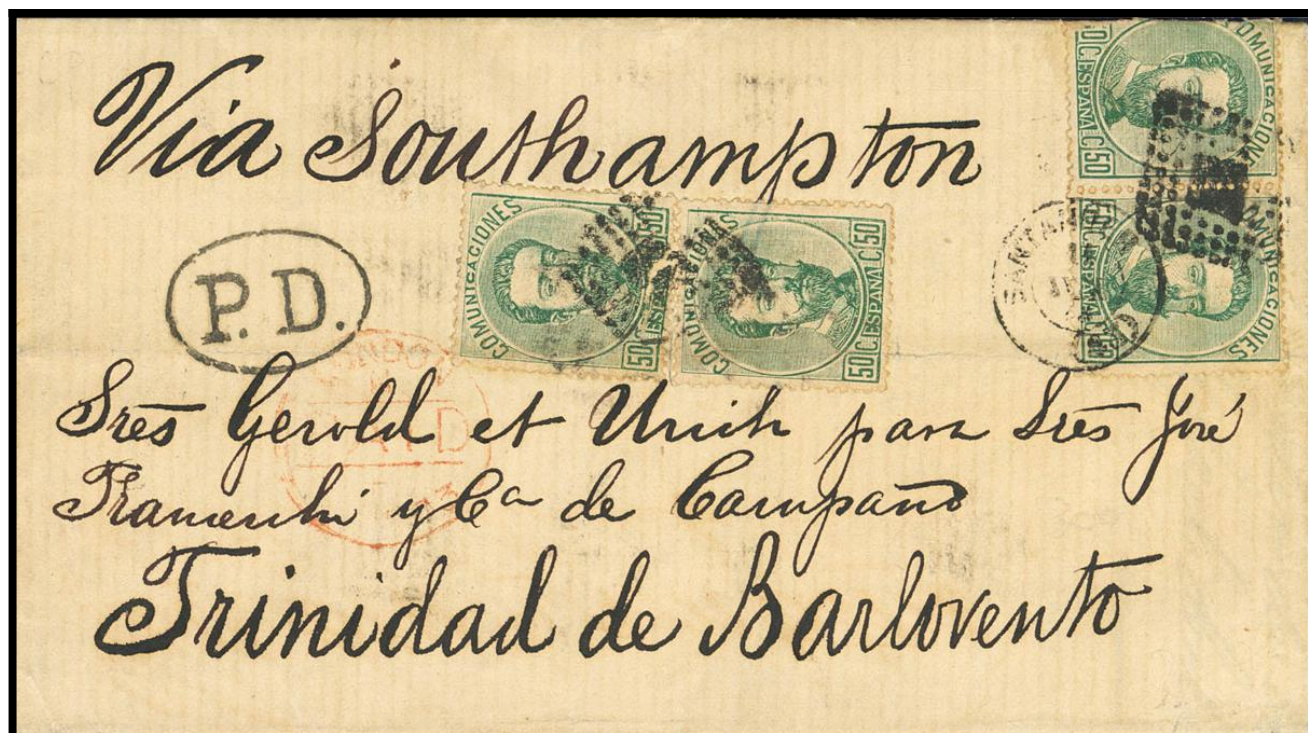 Via Southampton
COMUNICACIONES
50 C. ESPAÑA C. 50
COMUNICACIONES
50 C. ESPAÑA C. 50
COMUNICACIONES
50 C. ESPAÑA C. 50
COMUNICACIONES
50 C. ESPAÑA C. 50
P. D.
Sres Gerold et Urich para Sres José
y Ca de Campano
Trinidad de Barlovento